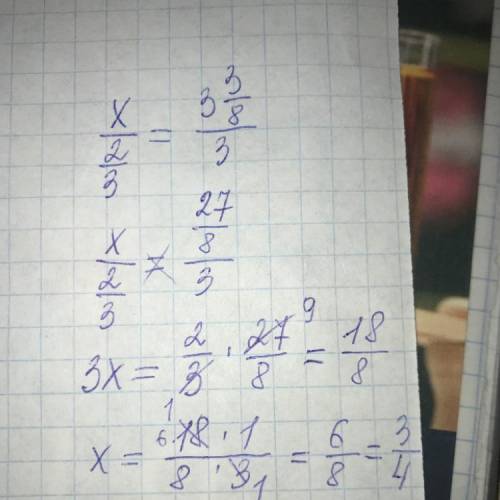 x/(2/3) = (3 3/8)/3
x/(2/3) = (27/8)/3
3x = 2/3 · 27/8 9 = 18/8
x = 1 6 18 · 1 / 8 · 3 1 = 6/8 = 3/4